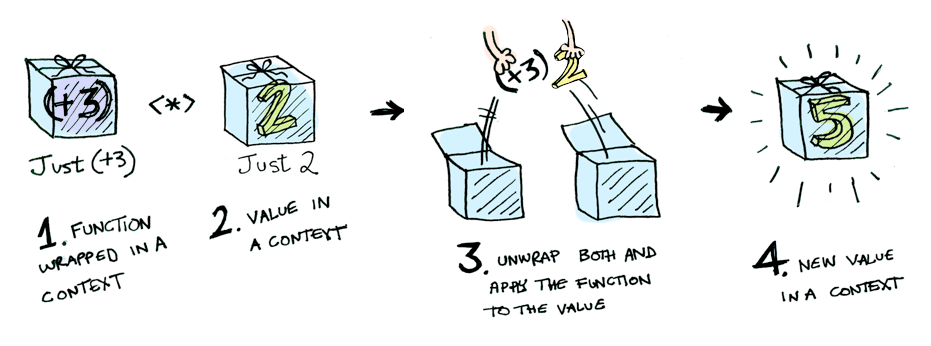 (+3)
<*>
2
Just (+3)
Just 2
(+3) 2
5
1. FUNCTION
WRAPPED IN A
CONTEXT
2. VALUE IN
A CONTEXT
3. UNWRAP BOTH AND
APPLY THE FUNCTION
TO THE VALUE
4. NEW VALUE
IN A CONTEXT